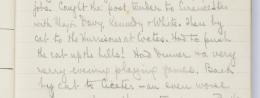 John. Caught the post, tender to Cirencester
with Major Davy, Kennedy & White. Then by
car to the Harrisons at Coates. Had to push
the car up the hills! Had dinner & a very
merry evening playing games. Back
by car to Cicester - an even worse